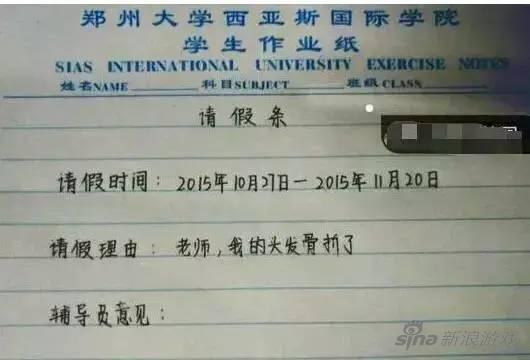 郑州大学西亚斯国际学院
学生作业纸
SIAS INTERNATIONAL UNIVERSITY EXERCISE NOTES
姓名NAME 科目SUBJECT 班级CLASS
请假条
请假时间：2015年10月27日—2015年11月20日
请假理由：老师，我的头发骨折了
辅导员意见：
sina新浪游戏